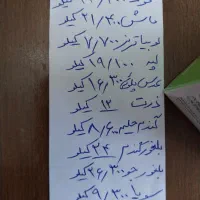 ماش ۲۱/۴۰۰ کیلو
لوبیا قرمز ۷/۷۰۰ کیلو
لپه ۱۹/۱۰۰ کیلو
عدس پلویی ۱۶/۳۰۰ کیلو
ذرت ۱۲ کیلو
گندم حلیم ۸/۶۰۰ کیلو
بلغور گندم ۲۴ کیلو
بلغور جو ۲۶/۳۰۰ کیلو
سویا ۹/۳۰۰ کیلو